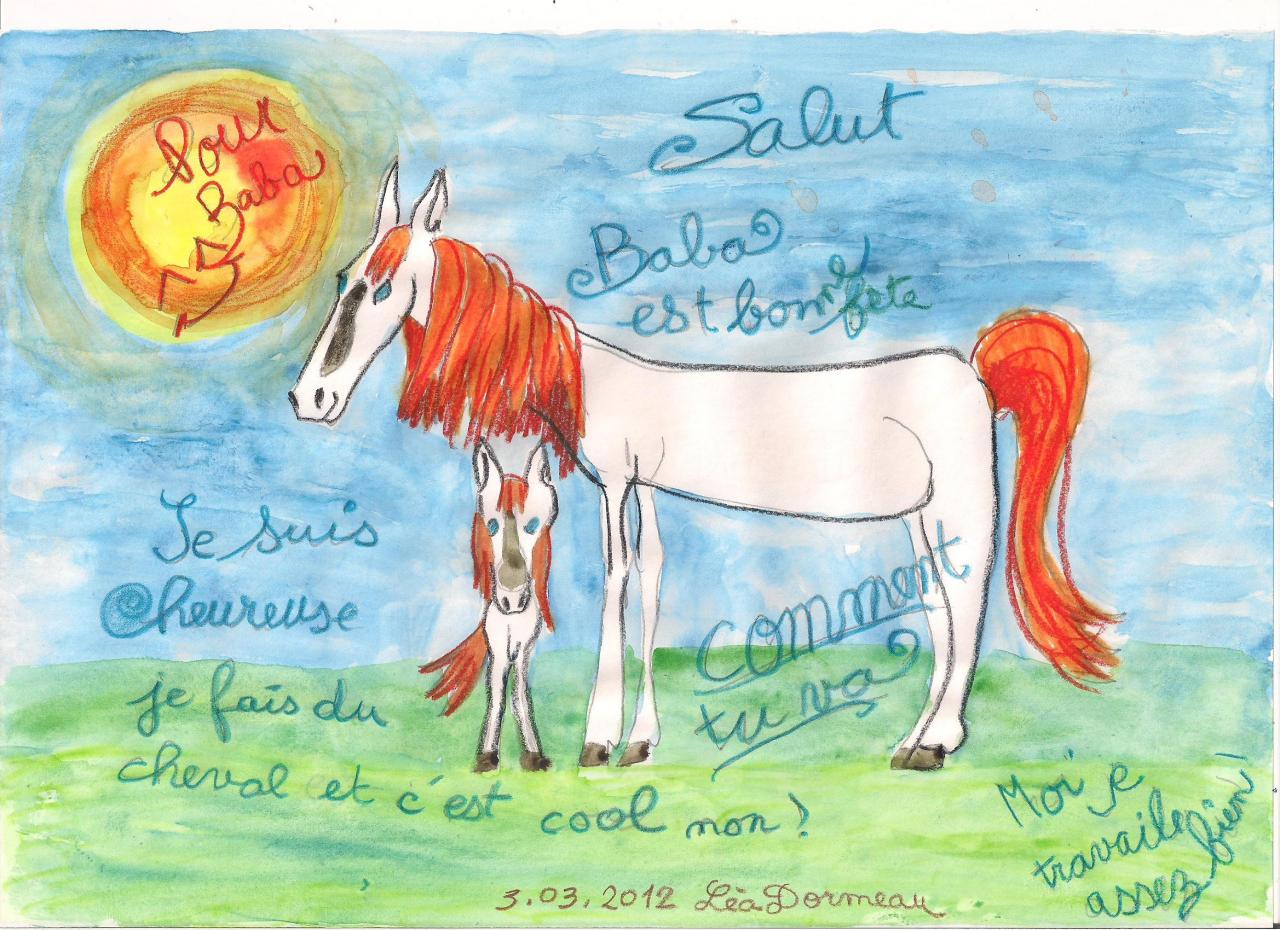 Pour
Baba
Salut
Baba
est bonne fête
Je suis
heureuse
je fais du
cheval et c'est cool non !
comment
tu va
Moi je
travaile
assez bien
3.03.2012 Léa Dormeau